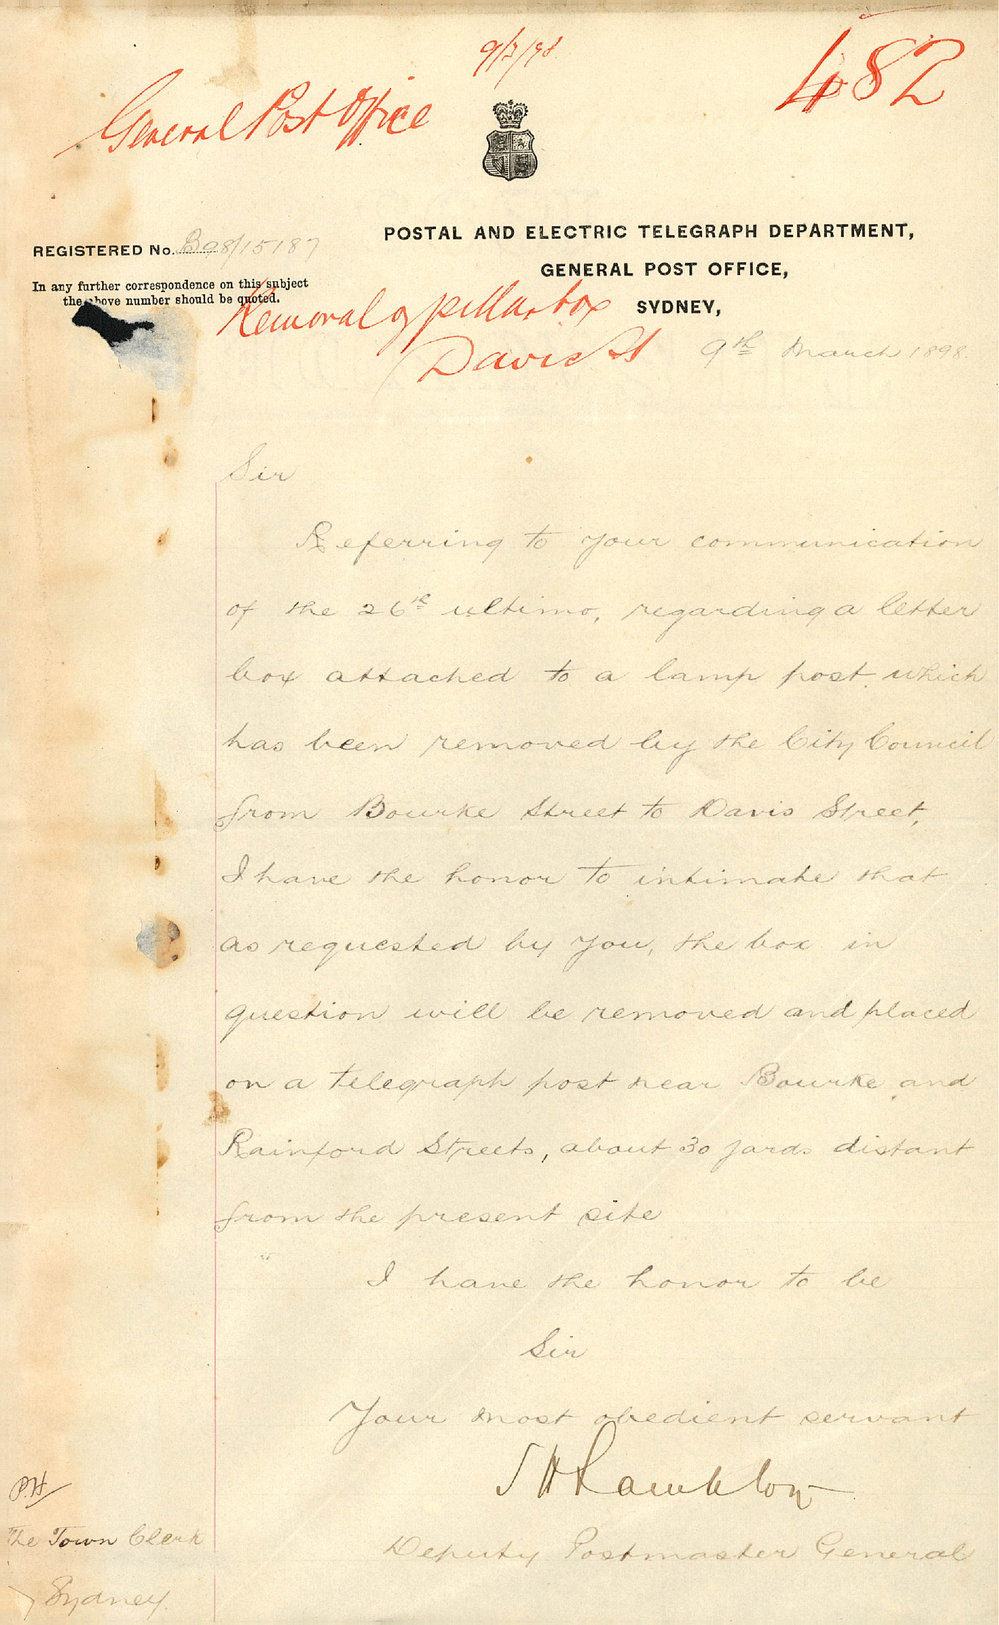 9/3/98
482
General Post Office
REGISTERED No. B98/15187
In any further correspondence on this subject
the above number should be quoted.
POSTAL AND ELECTRIC TELEGRAPH DEPARTMENT,
GENERAL POST OFFICE,
SYDNEY,
Removal of pillar box
Davis St
9th March 1898
Sir
Referring to your communication
of the 26th ultimo, regarding a letter
box attached to a lamp post which
has been removed by the City Council
from Bourke Street to Davis Street,
I have the honor to intimate that
as requested by you, the box in
question will be removed and placed
on a telegraph post near Bourke and
Rainford Streets, about 30 yards distant
from the present site
I have the honor to be
Sir
Your most obedient servant
S H Lambton
Deputy Postmaster General
P.H
The Town Clerk
Sydney